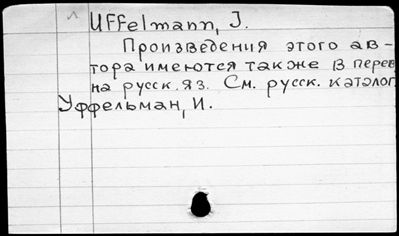 Uffelmann, J.
Произведения этого ав-
тора имеются также в перев
на русск. яз. См. русск. каталог
Уффельман, И.